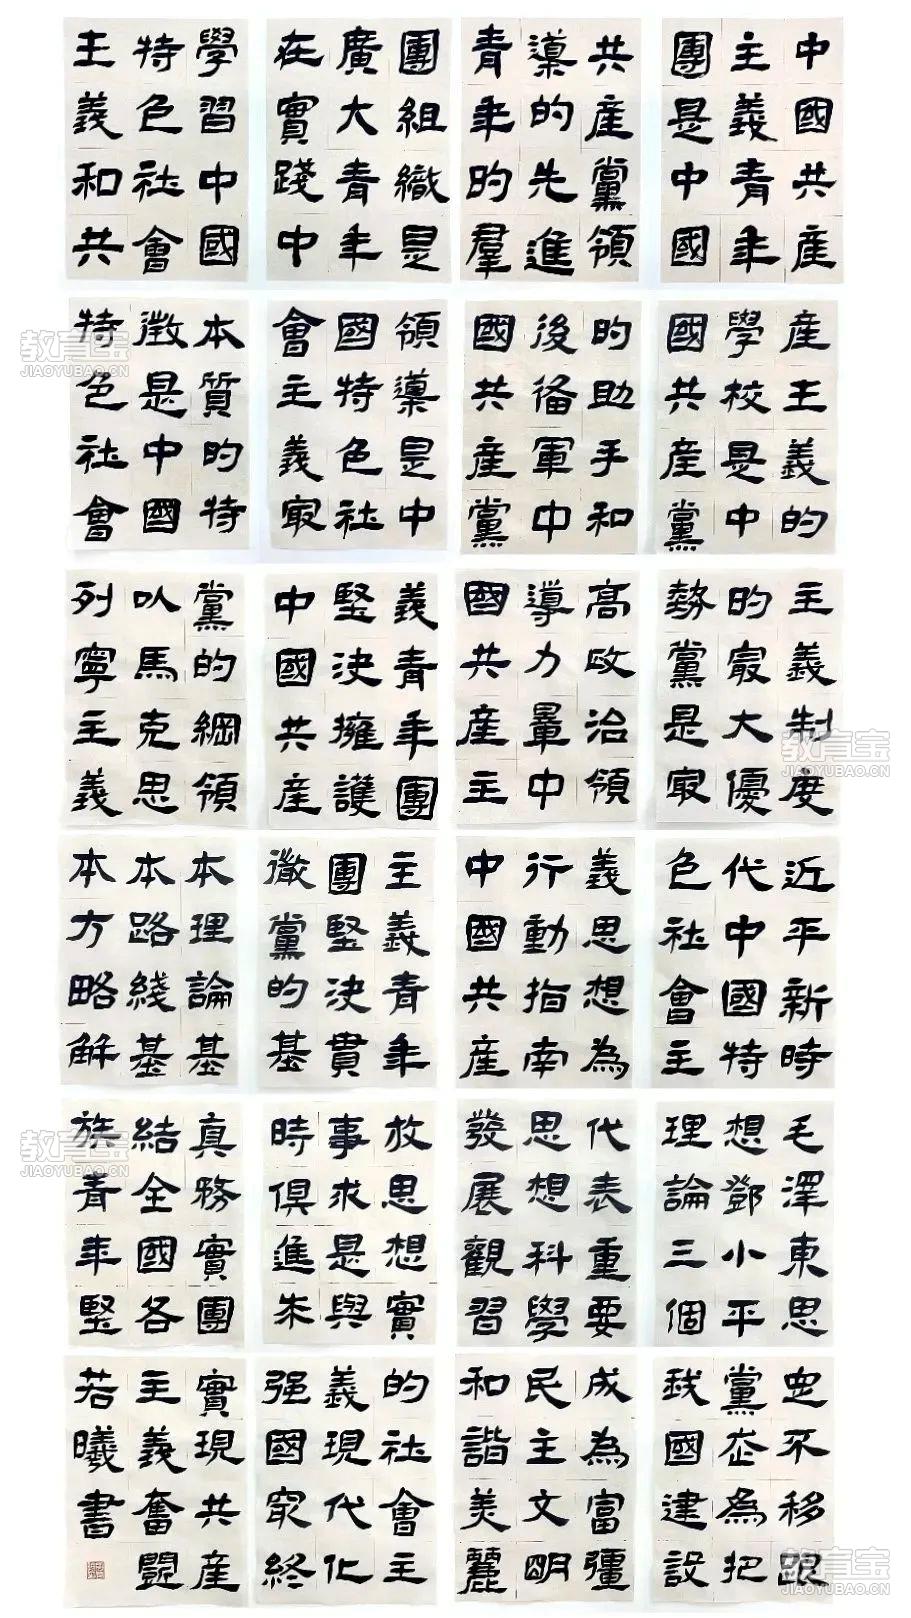 中國共產
主義青年
團是中國
共產黨領
導的先進
青年的羣
團組織是
廣大青年
在實踐中
學習中國
特色社會
主義和共
產主義的
學校是中
國共產黨
的助手和
後備軍中
國共產黨
領導是中
國特色社
會主義最
本質的特
徵是中國
特色社會
主義制度
的最大優
勢黨是最
高政治領
導力量中
國共產主
義青年團
堅決擁護
中國共產
黨的綱領
以馬克思
列寧主義
近平新時
代中國特
色社會主
義思想為
行動指南
中國共產
主義青年
團堅決貫
徹黨的基
本理論基
本路綫基
本方略解
毛澤東思
想鄧小平
理論三個
代表重要
思想科學
發展觀習
放思想實
事求是與
時俱進求
真務實團
結全國各
族青年堅
定不移跟
黨走為把
我國建設
成為富彊
民主文明
和諧美麗
的社會主
義現代化
强國最終
實現共產
主義奮鬥
若曦書
教育宝
JIAOYUBAO.CN
教育宝
JIAOYUBAO.CN
教育宝
JIAOYUBAO.CN
教育宝
JIAOYUBAO.CN